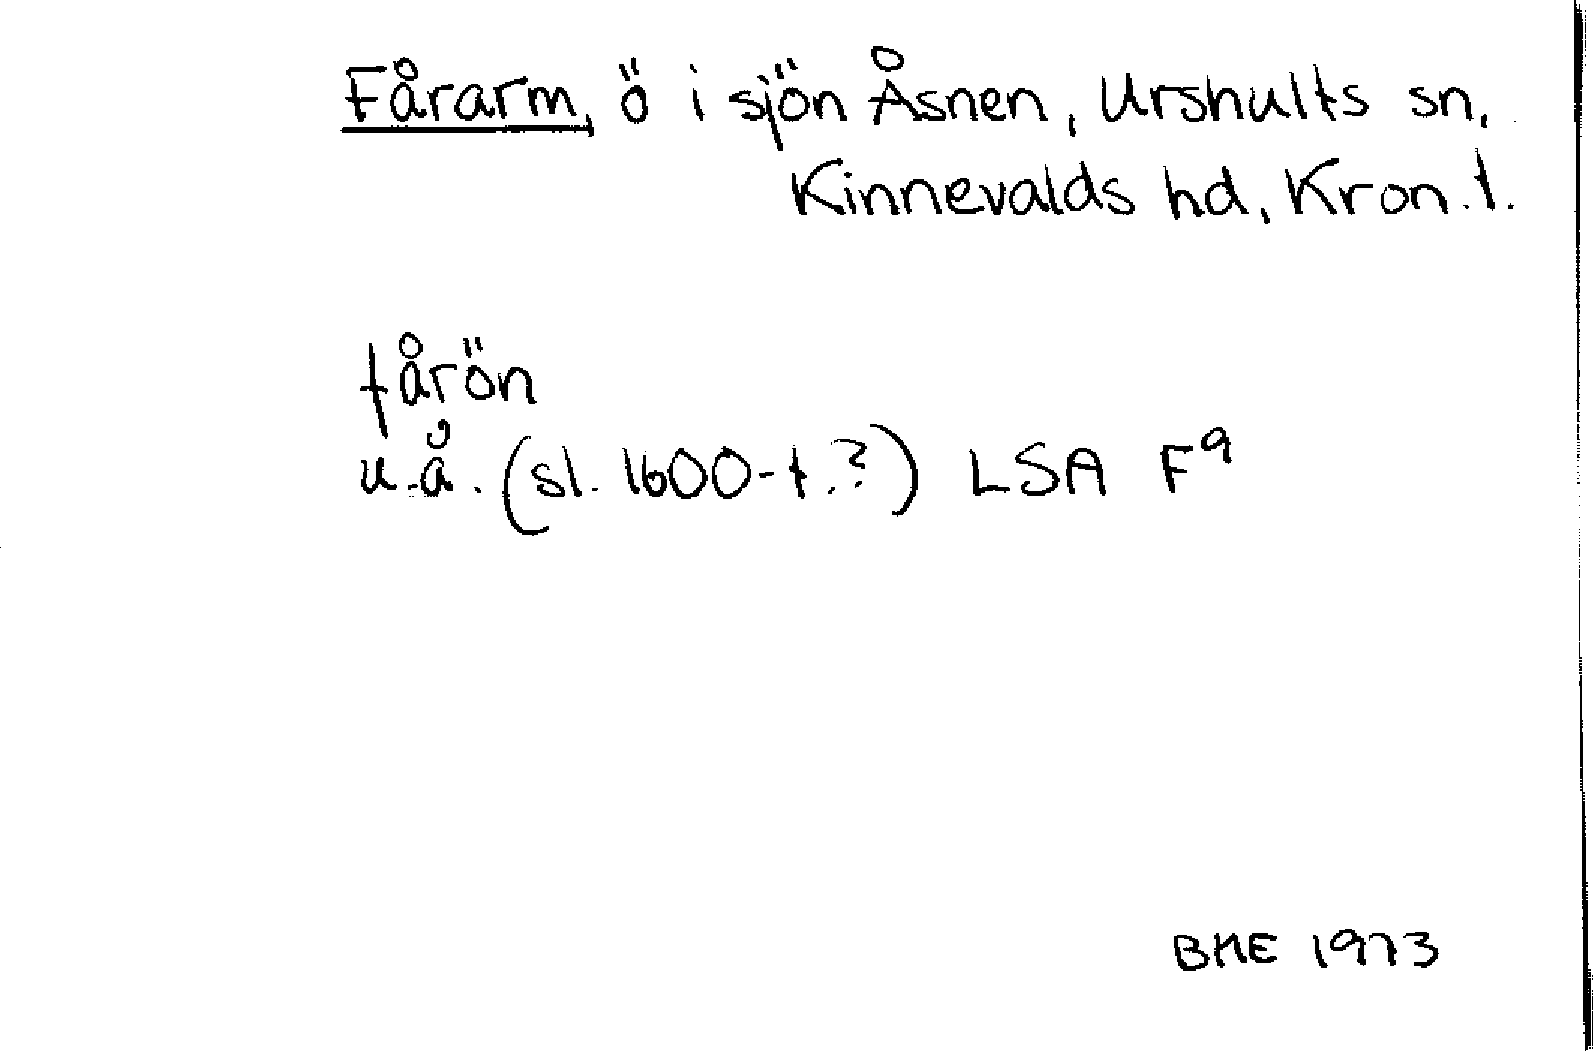 Fårarm, ö i sjön Åsnen, Urshults sn,
Kinnevalds hd, Kron. l.
fårön
u.å. (sl. 1600-t.?) LSA F⁹
BME 1973